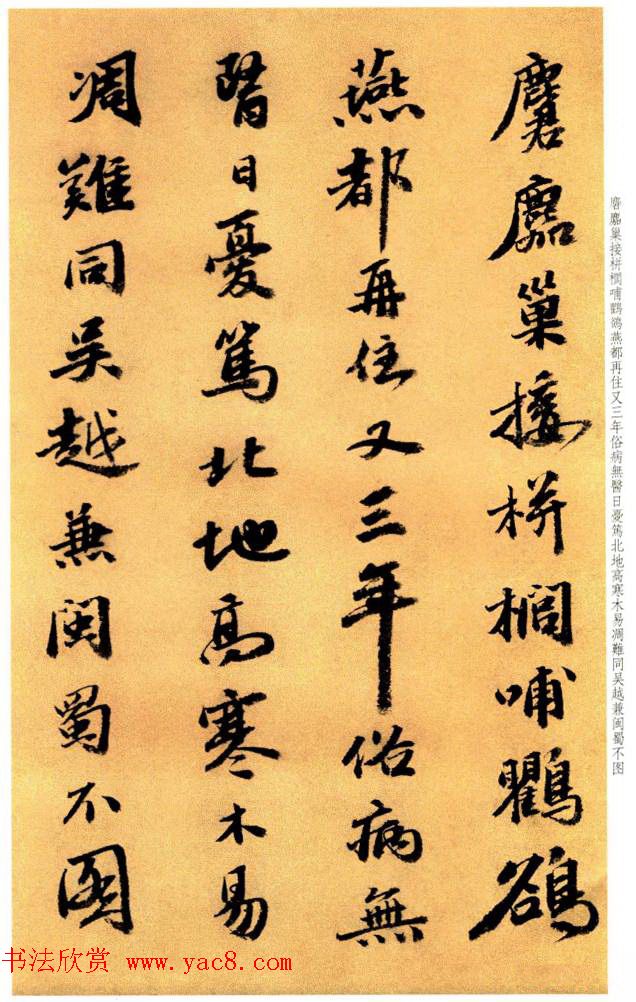 麏巢接栟櫚哺鸜鵒
燕都再住又三年俗病無
醫日憂篤北地高寒木易
凋難同吴越兼閩蜀不圖
巢接栟櫚哺鸜鵒燕都再住又三年俗病無醫日憂篤北地高寒木易凋難同吴越兼閩蜀不图
书法欣赏 www.yac8.com